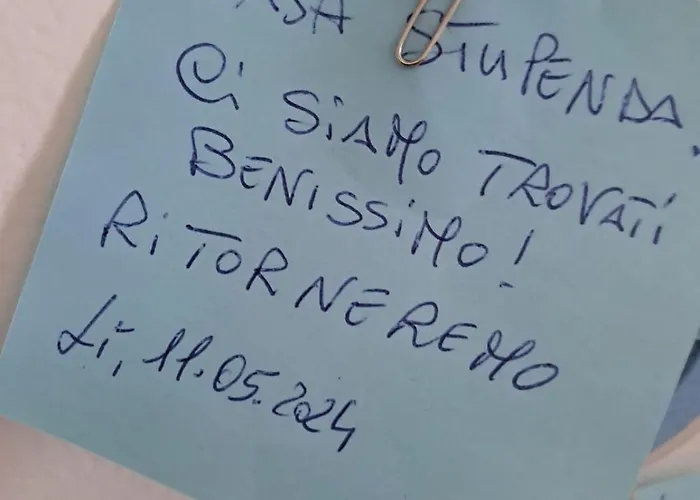 STUPENDA.
Ci SiAMO TROVATi
BENISSiMO!
RiTORNEREMO
Lì, 11.05.2024